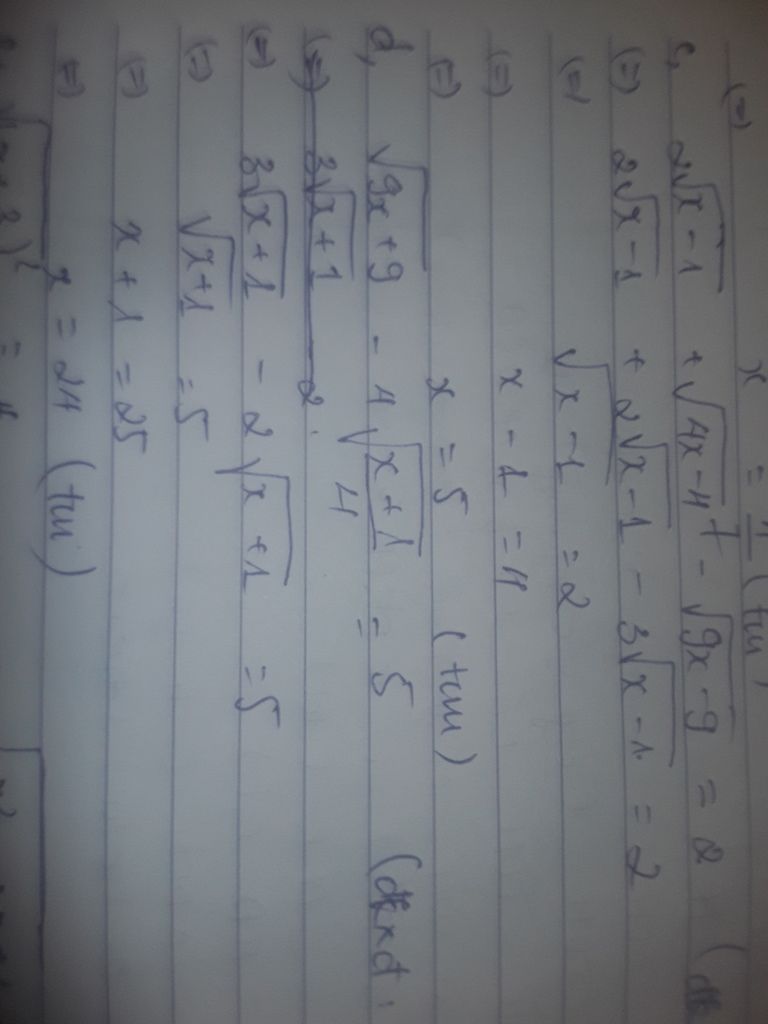 (=) x = (tm)
c, 2√x-1 + √4x-4 - √9x-9 = 2 (đk
(=) 2√x-1 + 2√x-1 - 3√x-1 = 2
(=) √x-1 = 2
(=) x - 1 = 4
(=) x = 5 (tm)
d, √9x+9 - 4√x+1/4 = 5 (đkxđ:
(=) 3√x+1 - 2
(=) 3√x+1 - 2√x+1 = 5
(=) √x+1 = 5
(=) x + 1 = 25
(=) x = 24 (tm)